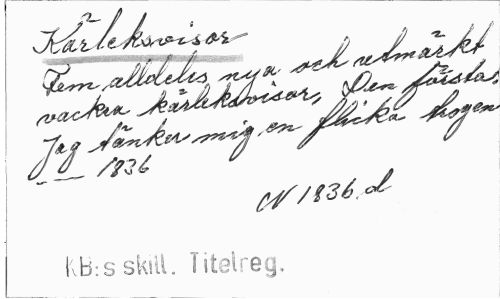 Kärleksvisor
Fem alldeles nya och utmärkt
vackra kärleksvisor, Den första:
Jag tänker mig en flicka trogen
— 1836
N 1836 d
KB:s skill. Titelreg.